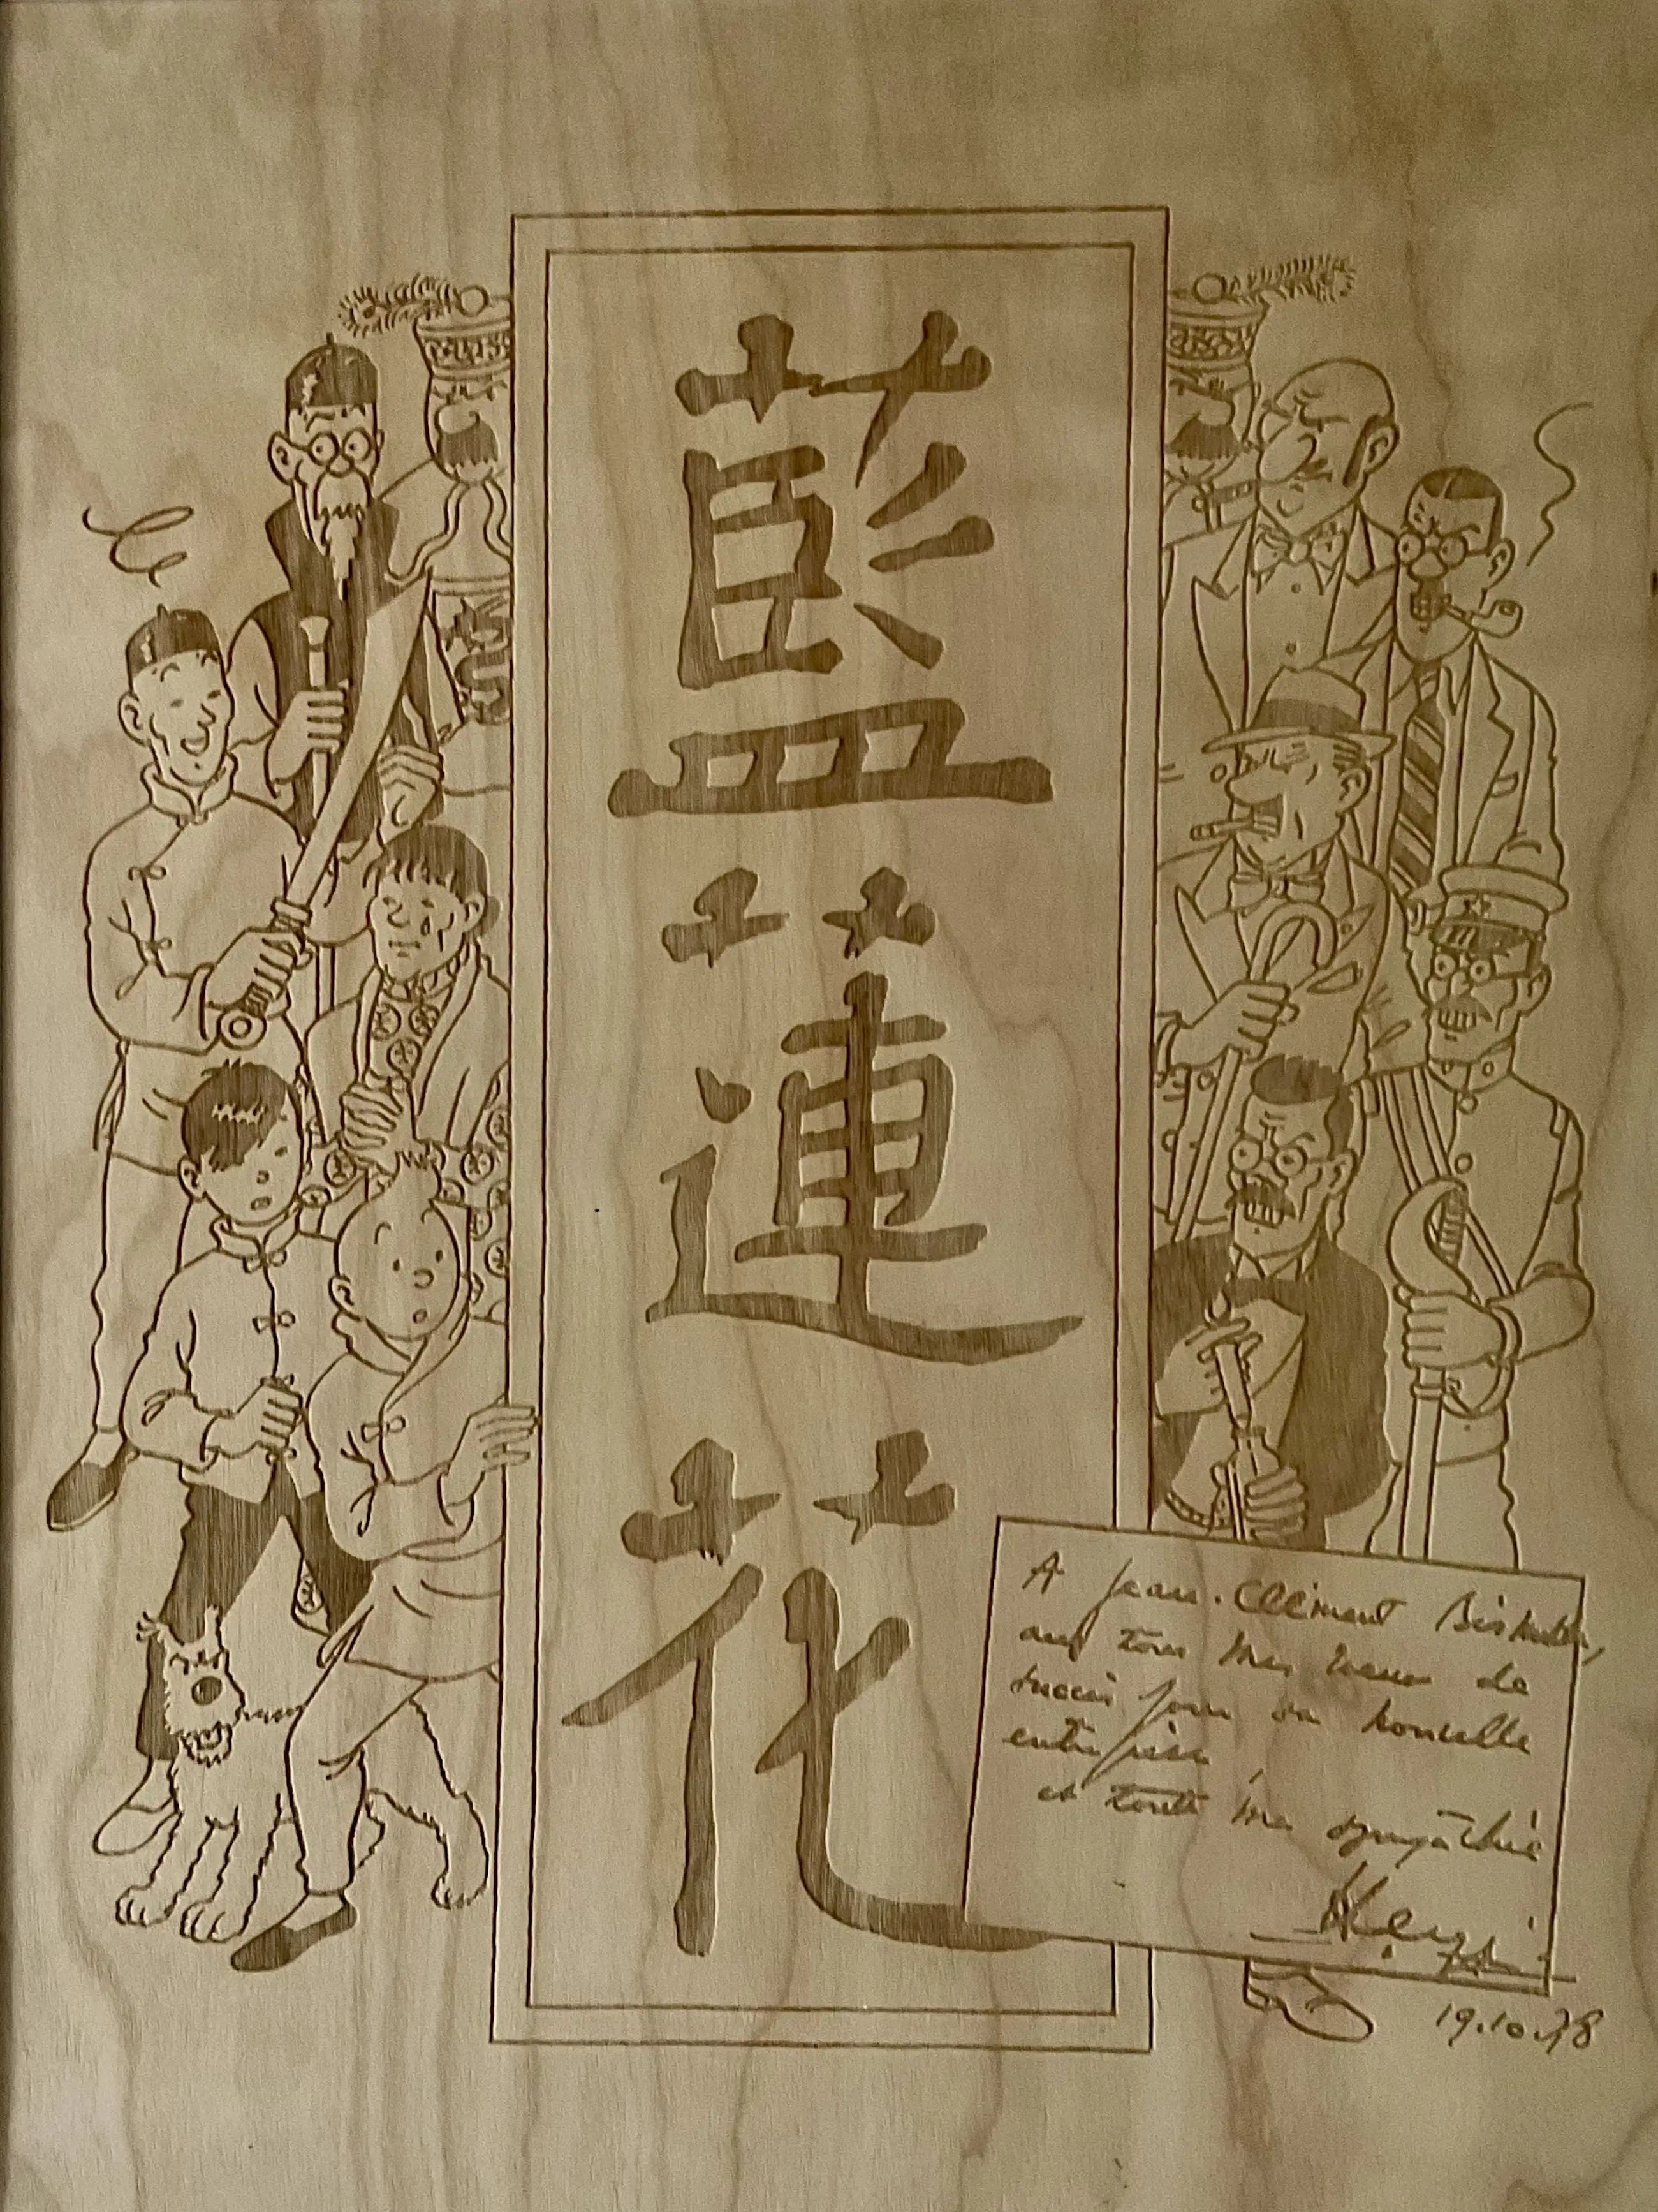 藍
蓮
花
A Jean-Clément
avec tous mes vœux de
succès pour sa nouvelle
entreprise
et toute ma sympathie
Hergé
19.10.78